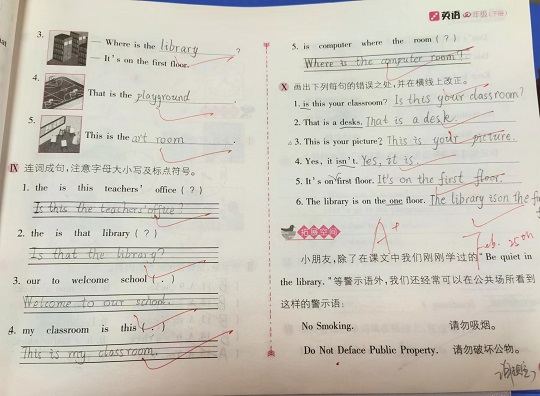 英语 四年级(下册)
3.
— Where is the library ?
— It's on the first floor.
4.
That is the playground
5.
This is the art room .
Ⅸ 连词成句,注意字母大小写及标点符号。
1. the is this teachers' office ( ? )
Is this the teachers' office?
2. the is that library ( ? )
Is that the library?
3. our to welcome school ( . )
Welcome to our school.
4. my classroom is this ( . )
This is my classroom.
5. is computer where the room ( ? )
Where is the computer room?
Ⅹ 画出下列每句的错误之处,并在横线上改正。
1. is this your classroom? Is this your classroom?
2. That is a desks. That is a desk.
3. This is your picture? This is your picture.
4. Yes, it isn't. Yes, it is.
5. It's on first floor. It's on the first floor.
6. The library is on the one floor. The library is on the
A+
Feb. 25th
拓展空间
小朋友,除了在课文中我们刚刚学过的"Be quiet in
the library."等警示语外,我们还经常可以在公共场所看到
这样的警示语:
No Smoking. 请勿吸烟。
Do Not Deface Public Property. 请勿破坏公物。